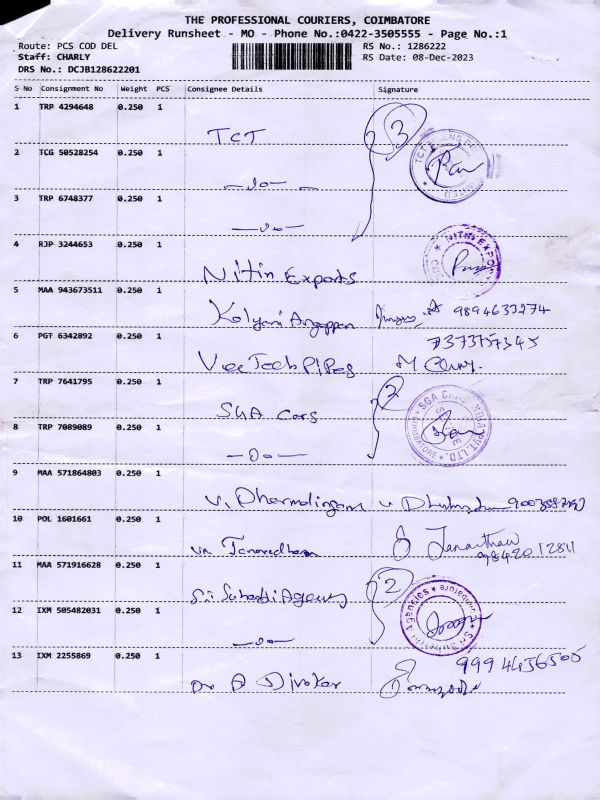 THE PROFESSIONAL COURIERS, COIMBATORE
Delivery Runsheet - MO - Phone No.:0422-3505555 - Page No.:1
Route: PCS COD DEL RS No.: 1286222
Staff: CHARLY RS Date: 08-Dec-2023
DRS No.: DCJB128622201
S No Consignment No Weight PCS Consignee Details Signature
1 TRP 4294648 0.250 1 TCT 3
2 TCG 50528254 0.250 1
3 TRP 6748377 0.250 1
4 RJP 3244653 0.250 1 Nitin Exports
5 MAA 943673511 0.250 1 Kalyani 9894633274
6 PGT 6342892 0.250 1 Vee Tech Pipes 7373757345
7 TRP 7641795 0.250 1 SGA Cars 2
8 TRP 7089089 0.250 1
9 MAA 571864803 0.250 1 V. Dharmalingam
10 POL 1601661 0.250 1 9842012811
11 MAA 571916628 0.250 1 Sri Agency 2
12 IXM 505482031 0.250 1
13 IXM 2255869 0.250 1 Dr 9994456505